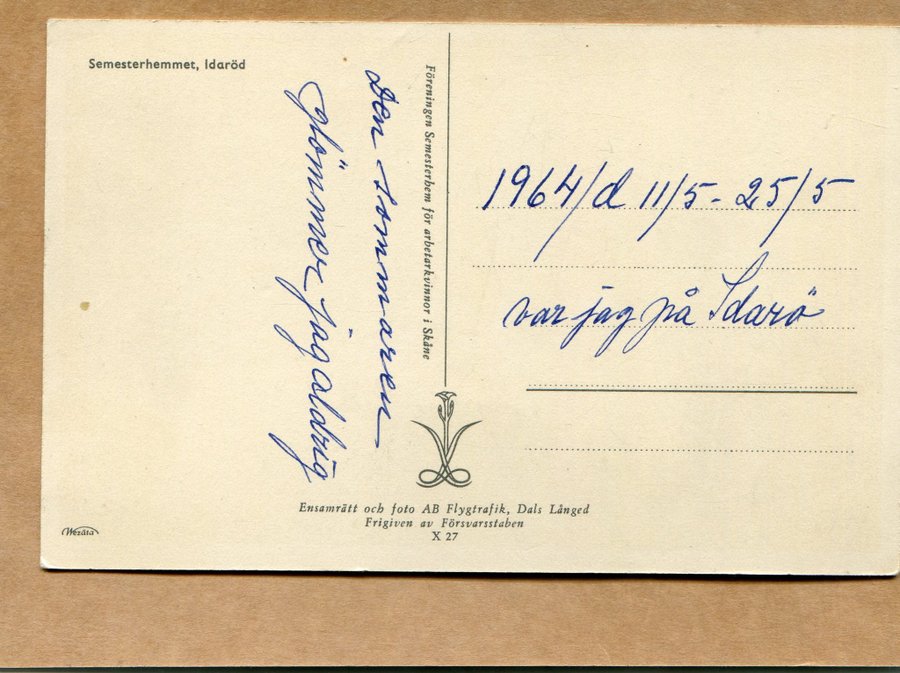 Semesterhemmet, Idaröd
Den sommaren
glömmer jag aldrig
Föreningen Semesterhem för arbetarkvinnor i Skåne
1964/d 11/5 - 25/5
var jag på Idarö
Ensamrätt och foto AB Flygtrafik, Dals Långed
Frigiven av Försvarsstaben
X 27
Wezäta